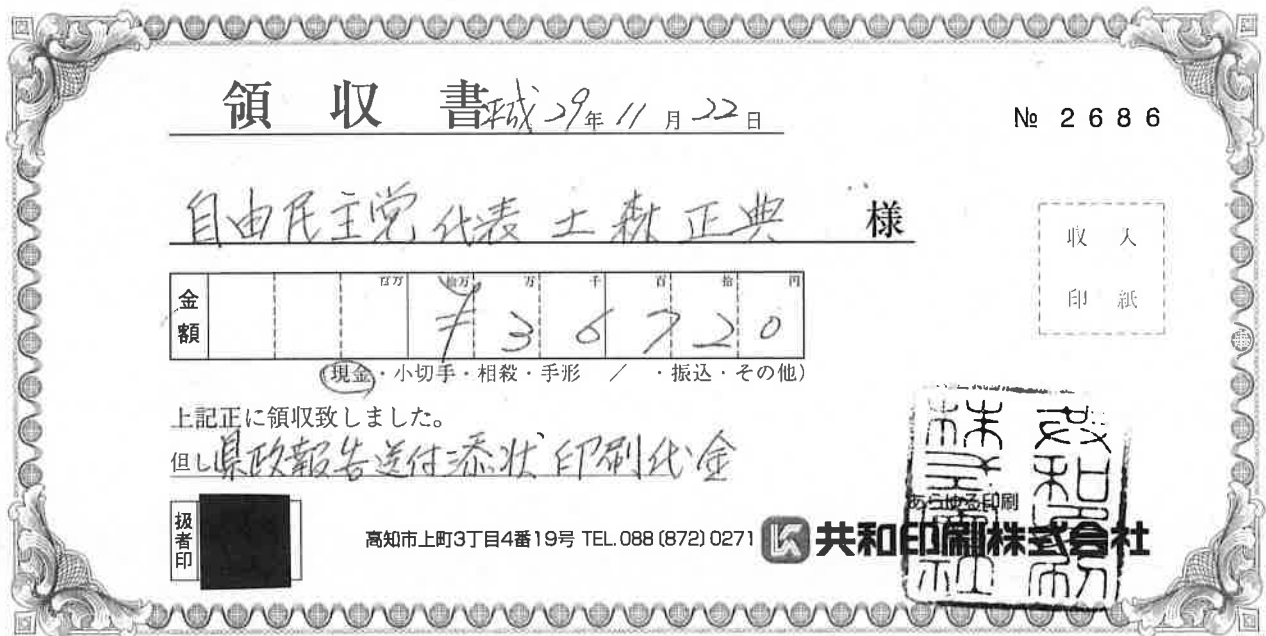 領収書 平成29年11月22日
№ 2686
自由民主党 代表 土森正典 様
収入
印紙
金額 百万 拾万 万 千 百 拾 円
¥36720
(現金・小切手・相殺・手形 / ・振込・その他)
上記正に領収致しました。
但し県政報告送付添状印刷代金
扱者印
あらゆる印刷
高知市上町3丁目4番19号 TEL.088(872)0271 共和印刷株式会社